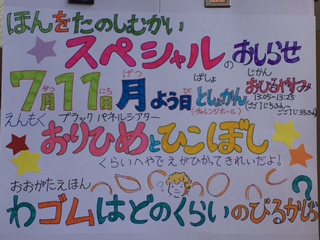 ほんをたのしむかい
スペシャルのおしらせ
7月11日月よう日
がつ にち げつ び
ばしょ
としょかん
(チャレンジホール)
じかん
おひるやすみ
13:05〜13:25
えんもく
ブラックパネルシアター
おりひめとひこぼし
くらいへやでえがひかってきれいだよ!
おおがたえほん
わゴムはどのくらいのびるかしら?